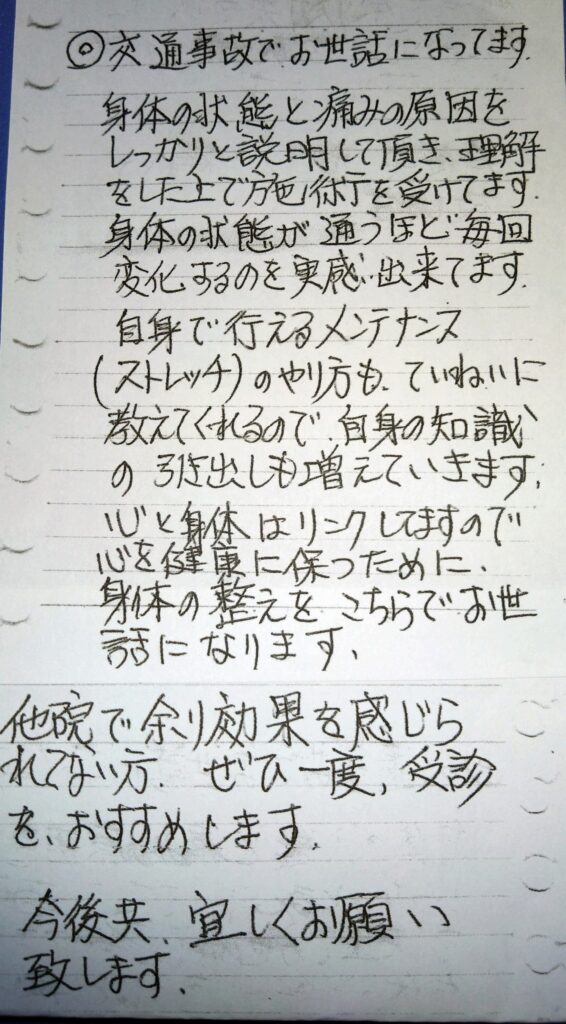 ◎交通事故でお世話になってます.
身体の状態と痛みの原因を
しっかりと説明して頂き、理解
をした上で施術を受けてます.
身体の状態が通うほど毎回
変化するのを実感出来てます.
自身で行えるメンテナンス
(ストレッチ)のやり方も、ていねいに
教えてくれるので、自身の知識
の引き出しも増えていきます.
心と身体はリンクしてますので
心を健康に保つために、
身体の整えをこちらでお世
話になります、
他院で余り効果を感じら
れてない方. ぜひ一度、受診
を、おすすめします.
今後共、宜しくお願い
致します.